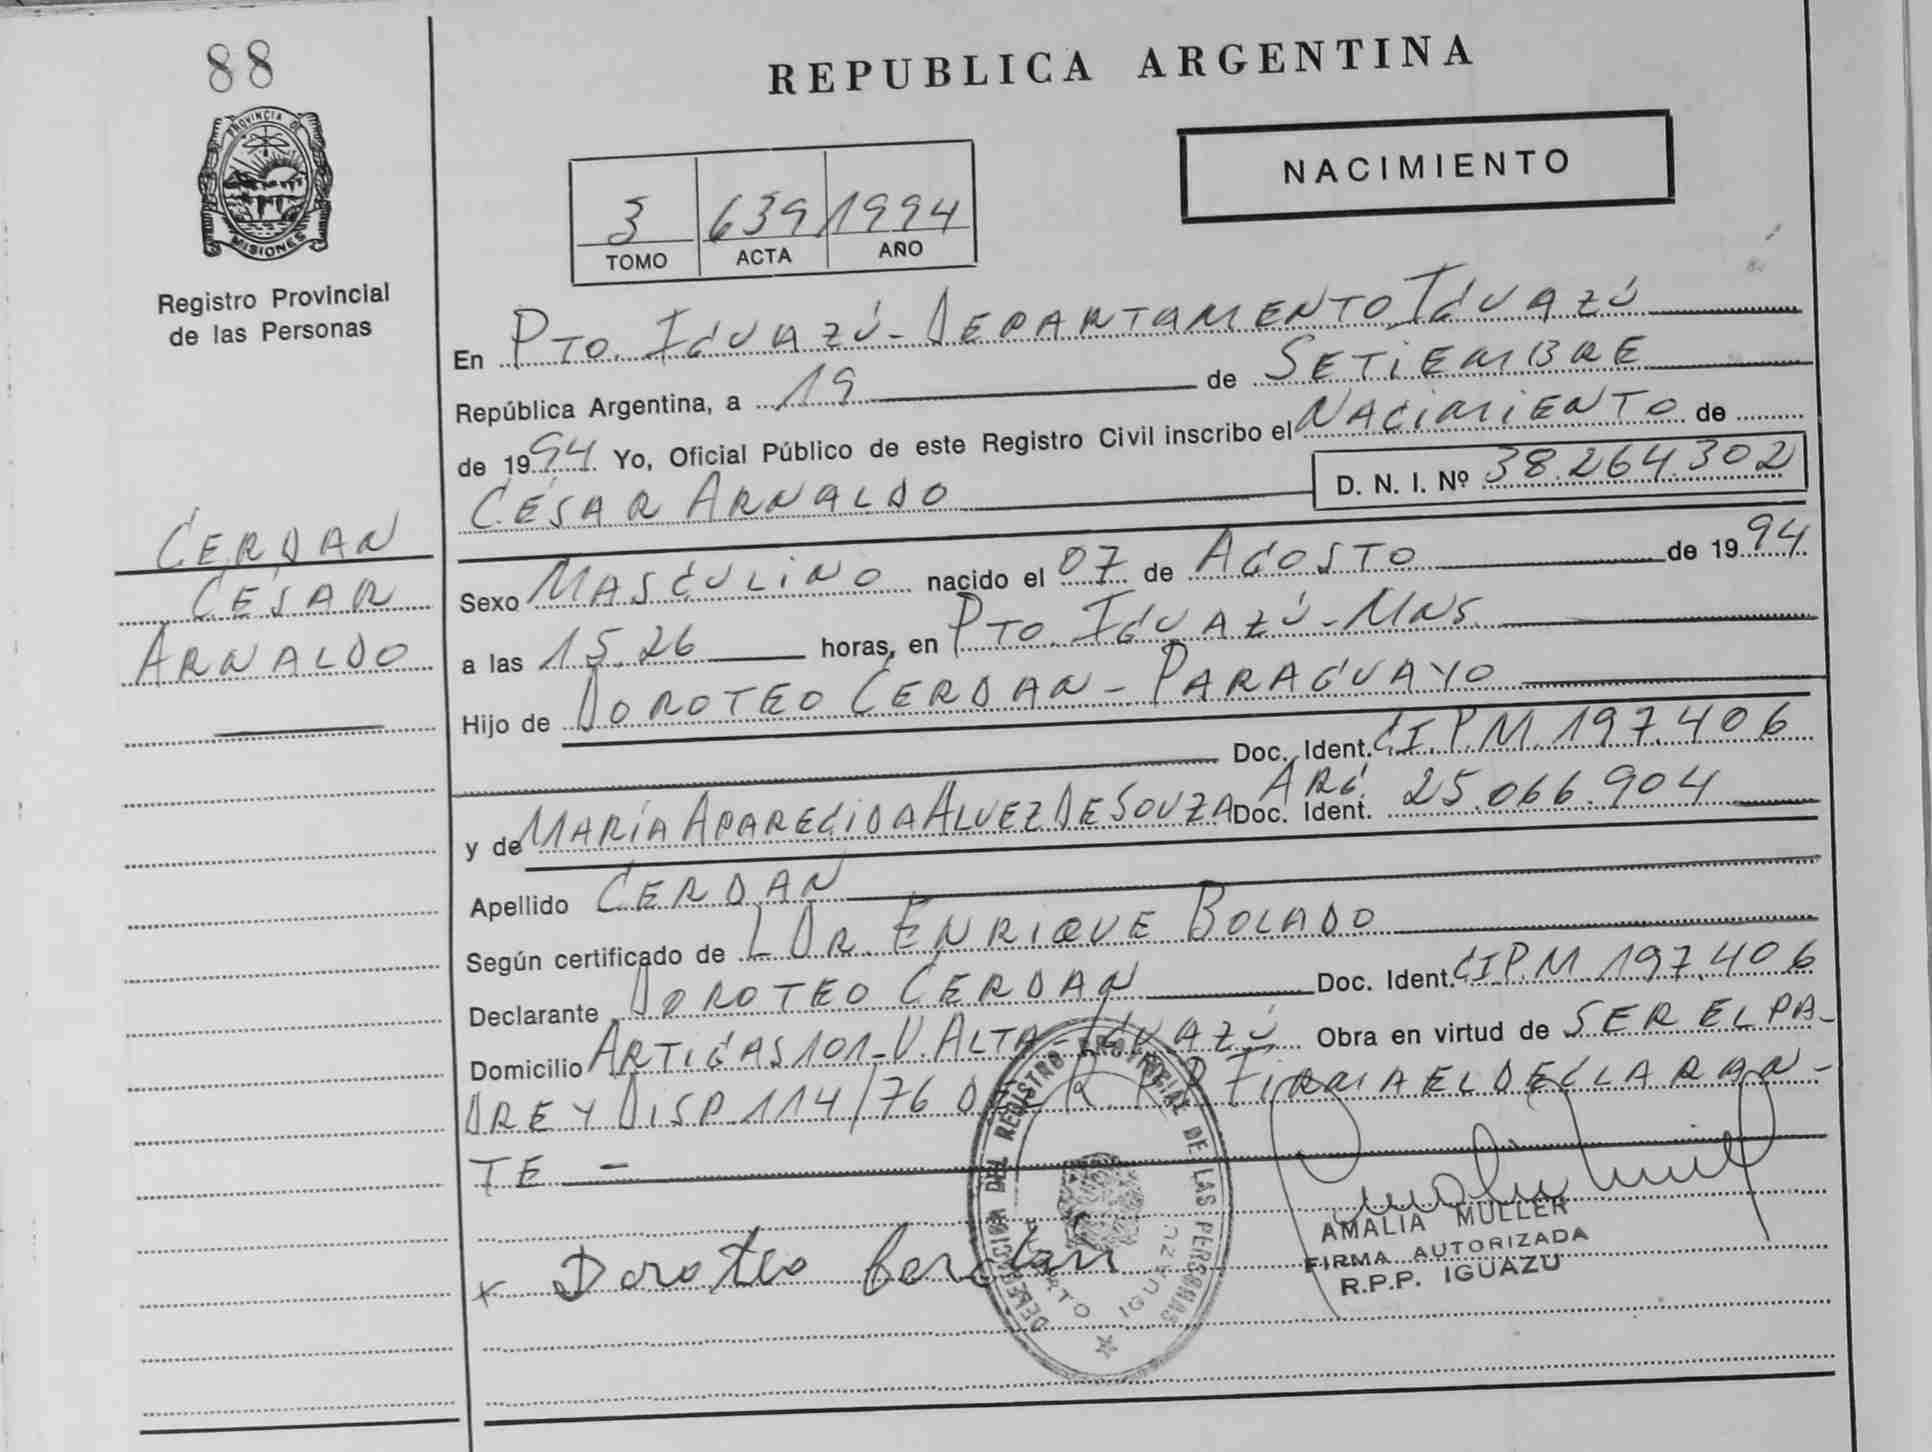 88
PROVINCIA DE
MISIONES
Registro Provincial
de las Personas
CERDAN
CÉSAR
ARNALDO
REPUBLICA ARGENTINA
NACIMIENTO
3 639 1994
TOMO ACTA AÑO
En PTO. IGUAZÚ - DEPARTAMENTO IGUAZÚ
República Argentina, a 19 de SETIEMBRE
de 1994 Yo, Oficial Público de este Registro Civil inscribo el NACIMIENTO de
CÉSAR ARNALDO D. N. I. Nº 38.264.302
Sexo MASCULINO nacido el 07 de AGOSTO de 1994
a las 15.26 horas, en PTO. IGUAZÚ - MNS.
Hijo de DOROTEO CERDAN - PARAGUAYO
Doc. Ident. C.I.P.M. 197.406
y de MARÍA APARECIDA ALVEZ DE SOUZA ARG. Doc. Ident. 25.066.904
Apellido CERDAN
Según certificado de L DR. ENRIQUE BOLADO
Declarante DOROTEO CERDAN Doc. Ident. CIP.M 197.406
Domicilio ARTIGAS 101 - V. ALTA - IGUAZÚ Obra en virtud de SER EL PA-
DRE Y DISP. 114/76 DEL R.P.P FIRMA EL DECLARAN-
TE -
x Doroteo Cerdán
DELEGACION DEL REGISTRO PROVINCIAL DE LAS PERSONAS
PUERTO IGUAZU
AMALIA MULLER
FIRMA AUTORIZADA
R.P.P. IGUAZU